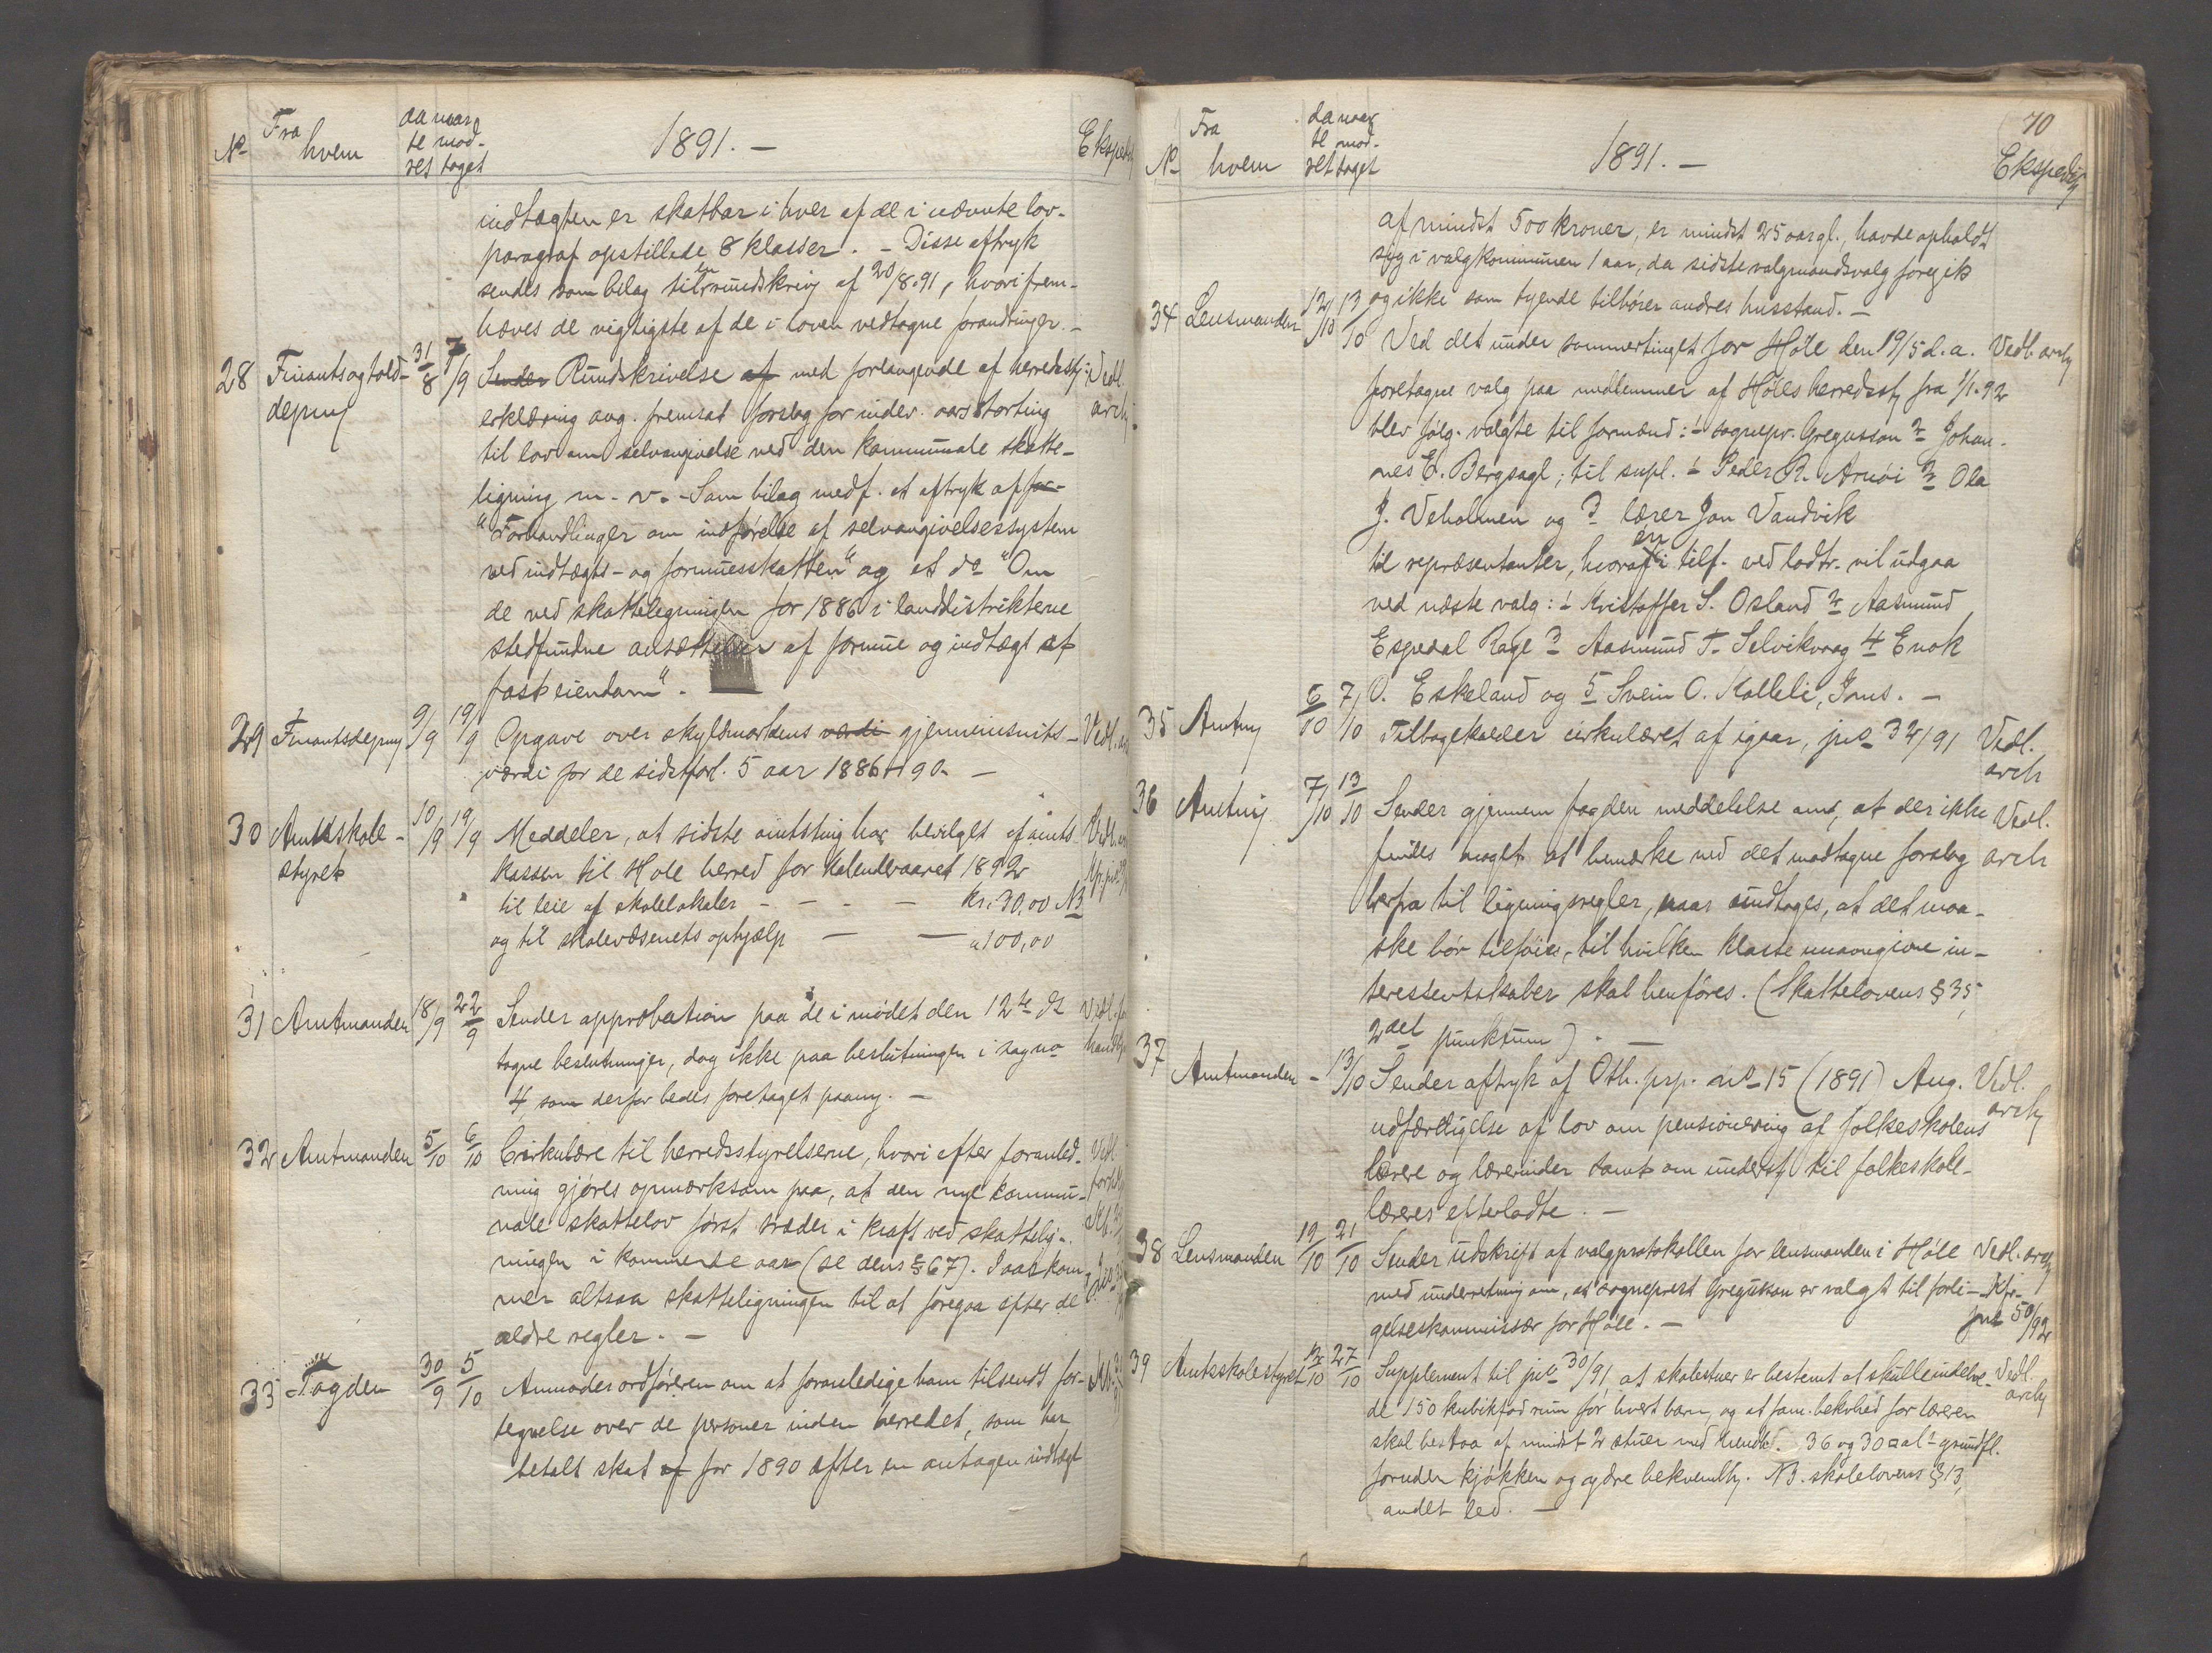 No Fra hvem da te ret naar mod- taget 1891. — Ekspedi
indtægten er skatbar i hver af de i nævnte lov-
paragraf opstillede 8 klasser. – Disse aftryk
sendes som bilag til en rundskriv af 20/8.91, hvori frem-
hæves de vigtigste af de i loven vedtagne forandringer. –
28 Finants og told- 31/8 7/9 Sender Rundskrivelse af med forlangende af herredsst. Vedl.
depmg erklæring ang. fremsat forslag for indev. aars storting arch.
til lov om selvangivelse ved den kommunale skatte-
ligning m. v. – Som bilag medf. et aftryk af for-
"Forhandlinger om indførelse af selvangivelsessystem
ved indtægts- og formuesskatten" og et do "Om
de ved skattelegningen for 1886 i landdistrikterne
stedfundne ansættelser af formue og indtægt af
fast eiendom".
29 Finantsdepmg 9/9 19/9 Opgave over skyldmarkens værdi gjennemsnits- Vedl. ar
værdi for de sidstforl. 5 aar 1886–90. —
30 Amtsskole- 10/9 19/9 Meddeler, at sidste amtsting har bevilget af amts Vedl. ar
styret kassen til Hole herred for kalenderaaret 1892
til leie af skolelokaler – – – — kr. 30,00 NB
og til skolevæsenets ophjælp — — " 100,00
31 Amtmanden 18/9 22/9 Sender approbation paa de i mødet den 12te ds Vedl. for
tagne beslutninger, dog ikke paa beslutningen i sag no handl
4, som derfor bedes foretaget paany. —
32 Amtmanden 5/10 6/10 Cirkulære til herredsstyrelserne, hvori efter foranled- Vedl.
ning gjøres opmærksom paa, at den nye kommu- forh
nale skattelov først træder i kraft ved skattelig-
ningen i kommende aar (se dens § 67). I aar kom
mer altsaa skatteligningen til at foregaa efter de
ældre regler. —
33 Fogden 30/9 5/10 Anmoder ordføreren om at foranledige ham tilsendt for-
tegnelse over de personer inden herredet, som har
betalt skat af for 1890 efter en antagen indtægt
70
No Fra hvem da te ret naar mod- taget 1891. — Ekspedi
af mindst 500 kroner, er mindst 25 aar gl., havde opholdt
sig i valgkommunen 1 aar, da sidste valgmandsvalg foregik
og ikke som tyende tilhører andres husstand. —
34 Lensmanden 12/10 13/10 Ved det under sommertinget for Höle den 19/5 d. a. Vedl. arch
foretagne valg paa medlemmer af Höles herredsst. fra 1/1.92
blev følg. valgte til formænd: 1 sognepr. Gregusson 2 Johan-
nes E. Bergsagl; til supl. 1 Peder R. Arnöi 2 Ola
J. Veholmen og 3 lærer Jon Vandvik
til repræsentanter, hvoraf en i tilf. ved lodtr. vil udgaa
ved næste valg: 1 Kristoffer S. Osland 2 Aasmund
Espedal Rage 3 Aasmund T. Selvikvaag 4 Enok
O. Eskeland og 5 Svein O. Kolleli, Ims. —
35 Amtmg 6/10 7/10 Tilbagekalder cirkulæret af igaar, jno 32/91 Vedl.
arch
36 Amtmg 7/10 13/10 Sender gjennem fogden meddelelse om, at der ikke Vedl.
findes noget at bemærke ved det modtagne forslag arch
herfra til ligningsregler, naar undtages, at det maa-
ske bør tilføies, til hvilken klasse unavngivne in-
teressentskaber skal henføres. (Skattelovens § 35,
2det punktum). —
37 Amtmanden – 13/10 Sender aftryk af Oth. prp. no 15 (1891) Ang. Vedl.
udfærdigelse af lov om pensionering af folkeskolens arch
lærere og lærerinder samt om underst. til folkeskole-
læreres efterladte. —
38 Lensmanden 19/10 21/10 Sender udskrift af valgprotokollen for lensmanden i Höle Vedl. arch
med underretning om, at sogneprest Gregusson er valgt til forli-
gelseskommissær for Höle. — jno 50/92
39 Amtsskolestyret 12/10 27/10 Supplement til jno 30/91 at skolestuer er bestemt at skulle indehol- Vedl.
de 150 kubikfod rum for hvert barn, og at fam. bekvhed for læreren arch
skal bestaa af mindst 2 stuer med henhd. 36 og 30 □ al. grundfl.
foruden kjøkken og ydre bekvemmh. NB. skolelovens § 13,
andet led. —